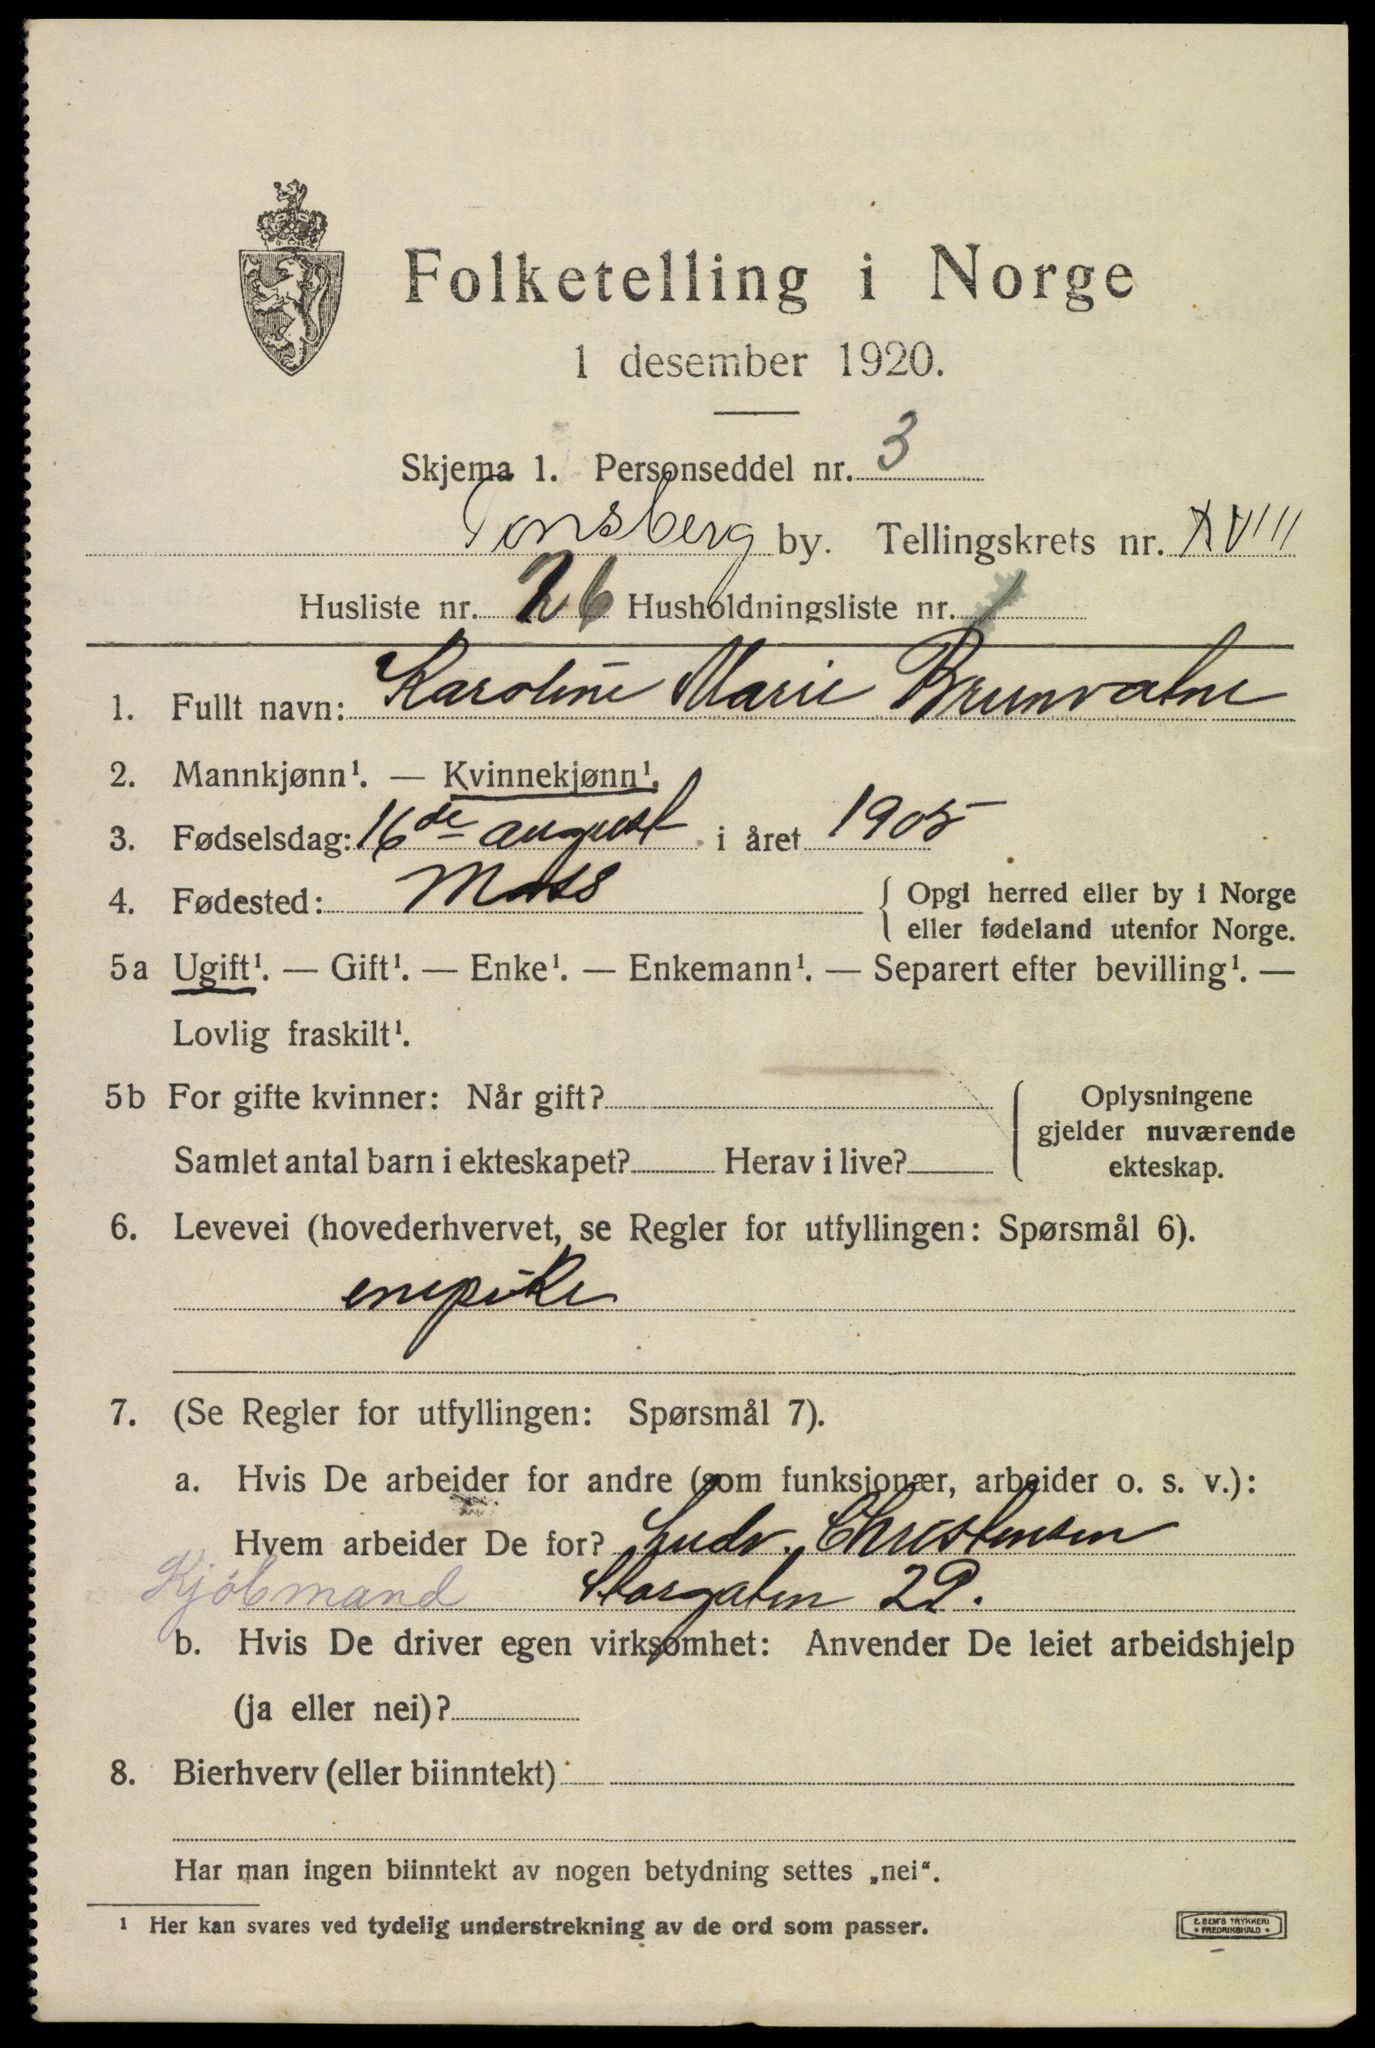 Folketelling i Norge
1 desember 1920.
Skjema 1. Personseddel nr. 3
Tønsberg by. Tellingskrets nr. XVIII
Husliste nr. 26 Husholdningsliste nr. 1
1. Fullt navn: Karoline Marie Brunvatne
2. Mannkjønn¹. — Kvinnekjønn¹.
3. Fødselsdag: 16de august i året 1905
4. Fødested: Moss { Opgi herred eller by i Norge
eller fødeland utenfor Norge.
5a Ugift¹. — Gift¹. — Enke¹. — Enkemann¹. — Separert efter bevilling¹. —
Lovlig fraskilt¹.
5b For gifte kvinner: Når gift? Oplysningene
gjelder nuværende
Samlet antal barn i ekteskapet? Herav i live? ekteskap.
6. Levevei (hovederhvervet, se Regler for utfyllingen: Spørsmål 6).
enepike
7. (Se Regler for utfyllingen: Spørsmål 7).
a. Hvis De arbeider for andre (som funksjonær, arbeider o. s. v.):
Hvem arbeider De for? Ludv. Christensen
Kjöbmand Storgaten 22.
b. Hvis De driver egen virksomhet: Anvender De leiet arbeidshjelp
(ja eller nei)?
8. Bierhverv (eller biinntekt) —
Har man ingen biinntekt av nogen betydning settes „nei“.
¹ Her kan svares ved tydelig understrekning av de ord som passer.
E. SEM'S TRYKKERI
FREDRIKSHALD